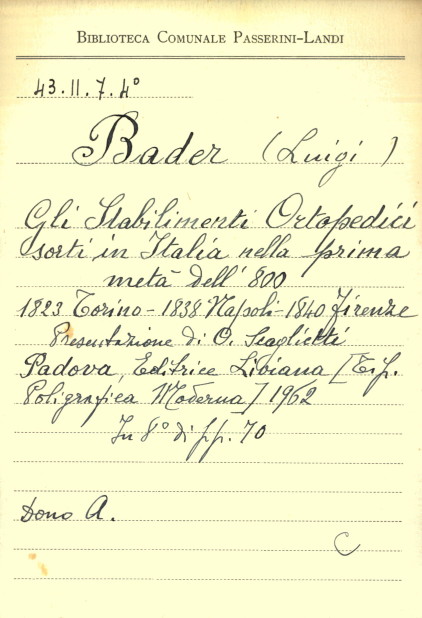 BIBLIOTECA COMUNALE PASSERINI-LANDI
43.II.7.4°
Bader (Luigi)
Gli Stabilimenti Ortopedici
sorti in Italia nella prima
metà dell' 800
1823 Torino - 1838 Napoli - 1840 Firenze
Presentazione di O. Scaglietti
Padova, Editrice Liviana [Tip.
Poligrafica Moderna] 1962
In 8° di pp. 70
Dono A.
C